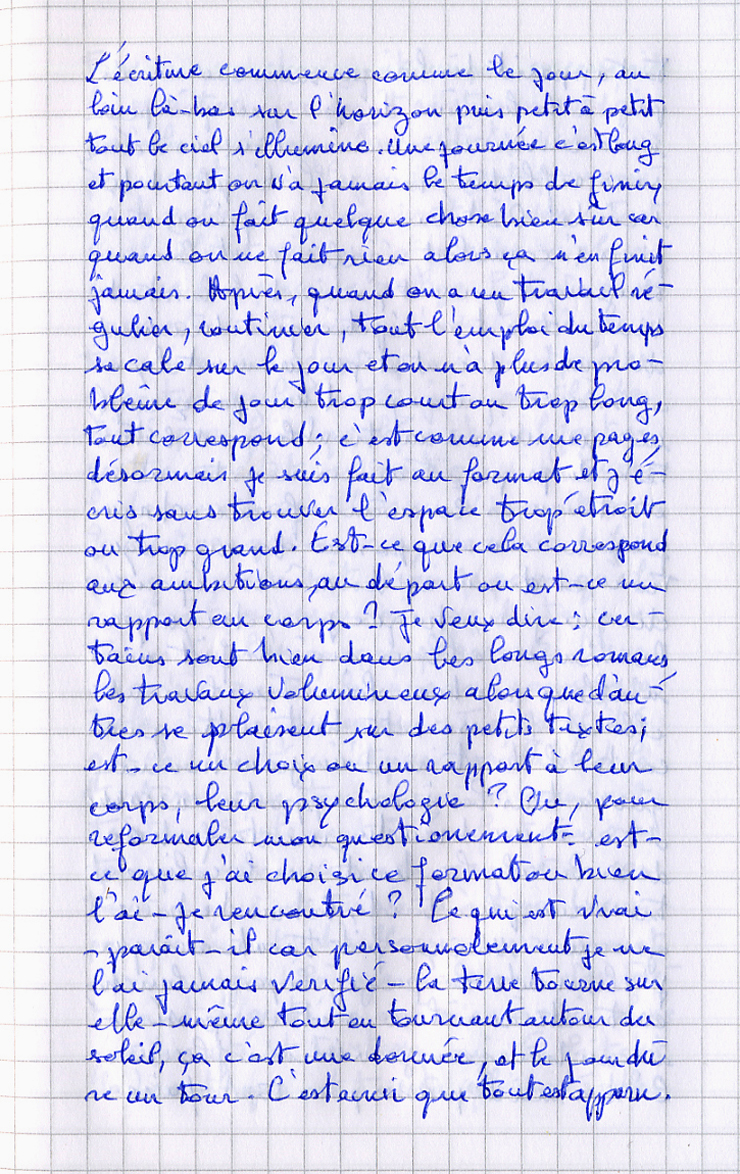 L'écriture commence comme le jour, au
loin là-bas sur l'horizon puis petit à petit
tout le ciel s'illumine. Une journée c'est long
et pourtant on n'a jamais le temps de finir,
quand on fait quelque chose bien sûr car
quand on ne fait rien alors ça n'en finit
jamais. Après, quand on a un travail ré-
gulier, routinier, tout l'emploi du temps
se cale sur le jour et on n'a plus de pro-
blème de jour trop court ou trop long,
tout correspond ; c'est comme une page,
désormais je suis fait au format et j'é-
cris sans trouver l'espace trop étroit
ou trop grand. Est-ce que cela correspond
aux ambitions au départ ou est-ce un
rapport au corps ? Je veux dire : cer-
tains sont bien dans les longs romans,
les travaux volumineux alors que d'au-
tres se plaisent sur des petits textes ;
est-ce un choix ou un rapport à leur
corps, leur psychologie ? Ou, pour
reformuler mon questionement : est-
ce que j'ai choisi ce format ou bien
l'ai-je rencontré ? Ce qui est vrai
- paraît-il car personnellement je ne
l'ai jamais vérifié - la terre tourne sur
elle-même tout en tournant autour du
soleil, ça c'est une donnée, et le jour du-
re un tour. C'est ainsi que tout est apparu.